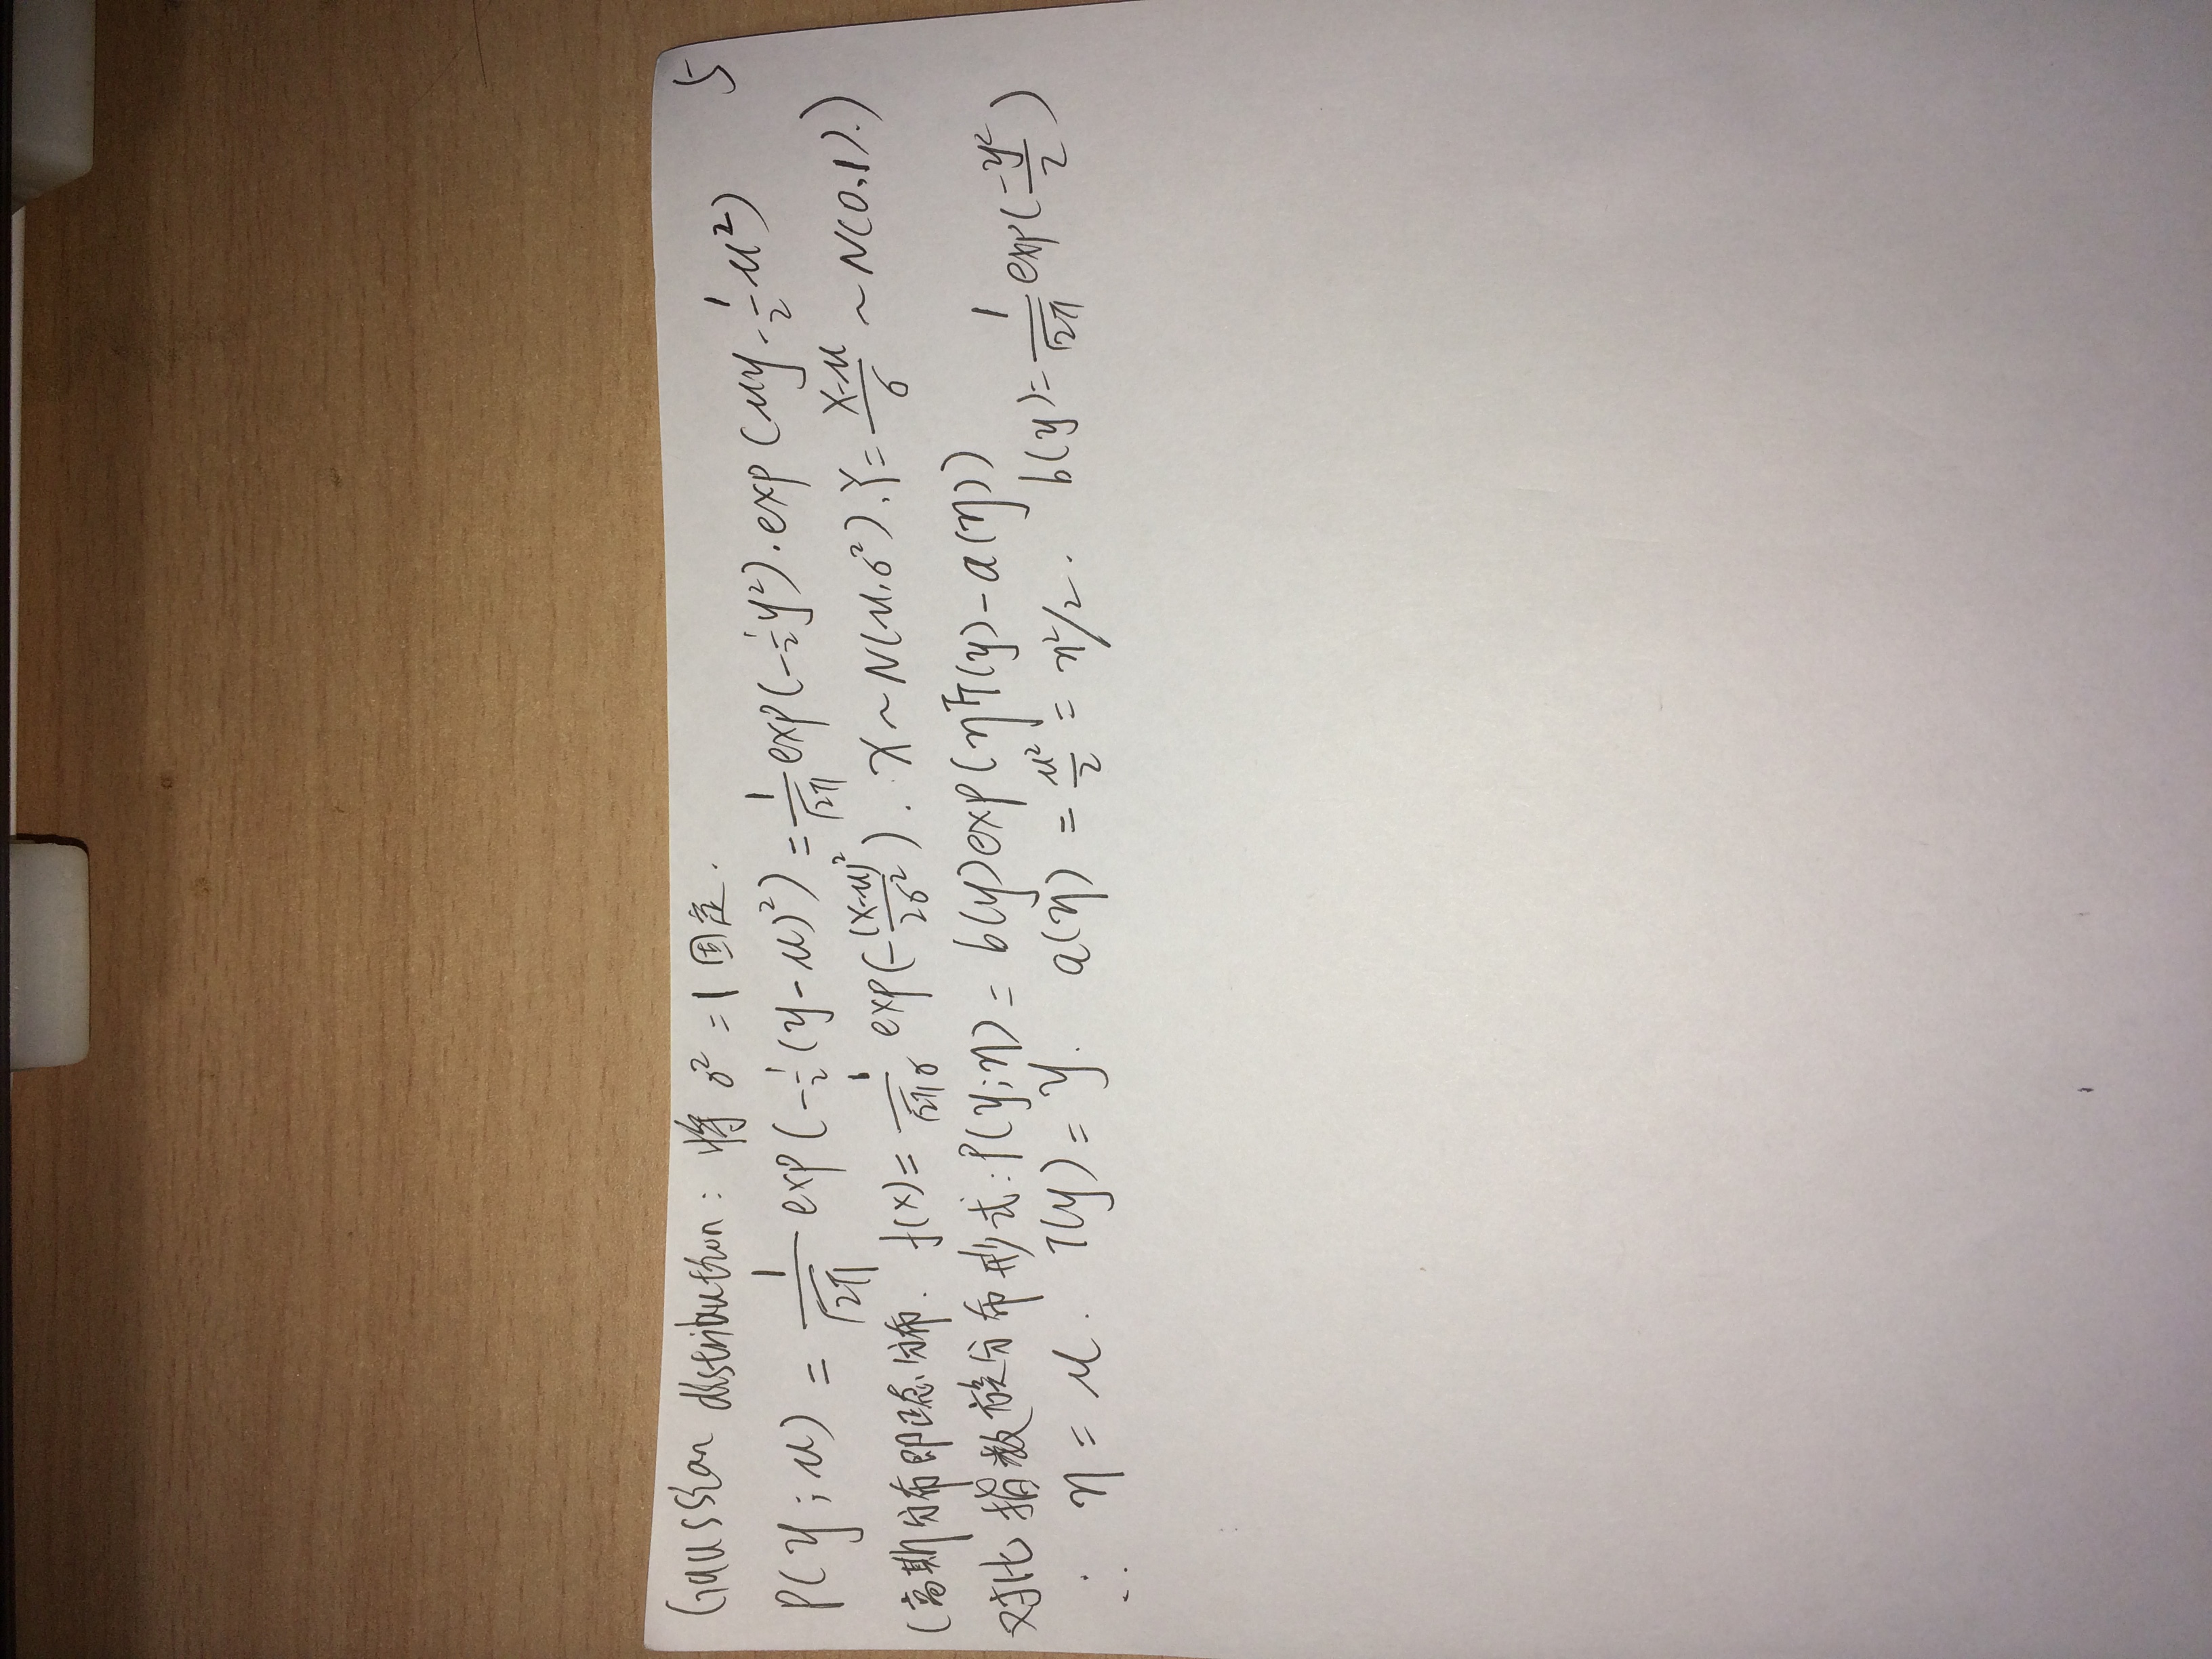 Gaussian distribution: 将 σ² = 1 固定. 5
P(y;μ) = 1/√2π exp(-1/2(y-μ)²) = 1/√2π exp(-1/2y²)·exp(μy-1/2μ²)
(高斯分布即正态分布. f(x) = 1/√2πσ exp(-(x-μ)²/2σ²). X~N(μ,σ²), Y = X-μ/σ ~ N(0,1).)
对比指数族分布形式: P(y;η) = b(y)exp(ηᵀT(y)-a(η))
∴ η = μ. T(y) = y. a(η) = μ²/2 = η²/2. b(y) = 1/√2π exp(-y²/2)